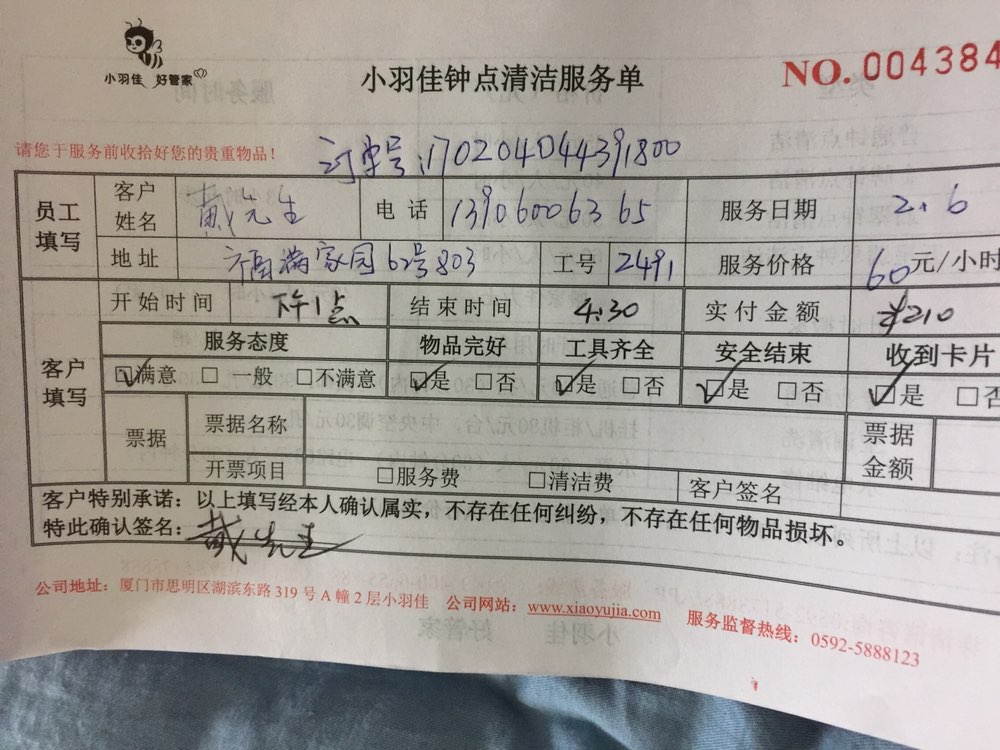 小羽佳 好管家
小羽佳钟点清洁服务单
NO. 004384
请您于服务前收拾好您的贵重物品!
订单号:170204044391800
员工填写 客户姓名 戴先生 电话 13906006365 服务日期 2.6
地址 福满家园62号803 工号 2491 服务价格 60元/小时
客户填写 开始时间 下午1点 结束时间 4:30 实付金额 ¥210
服务态度 物品完好 工具齐全 安全结束 收到卡片
☑满意 □一般 □不满意 ☑是 □否 ☑是 □否 ☑是 □否 ☑是 □否
票据 票据名称 票据金额
开票项目 □服务费 □清洁费 客户签名
客户特别承诺:以上填写经本人确认属实,不存在任何纠纷,不存在任何物品损坏。
特此确认签名:戴先生
公司地址:厦门市思明区湖滨东路319号A幢2层小羽佳 公司网站:www.xiaoyujia.com 服务监督热线:0592-5888123